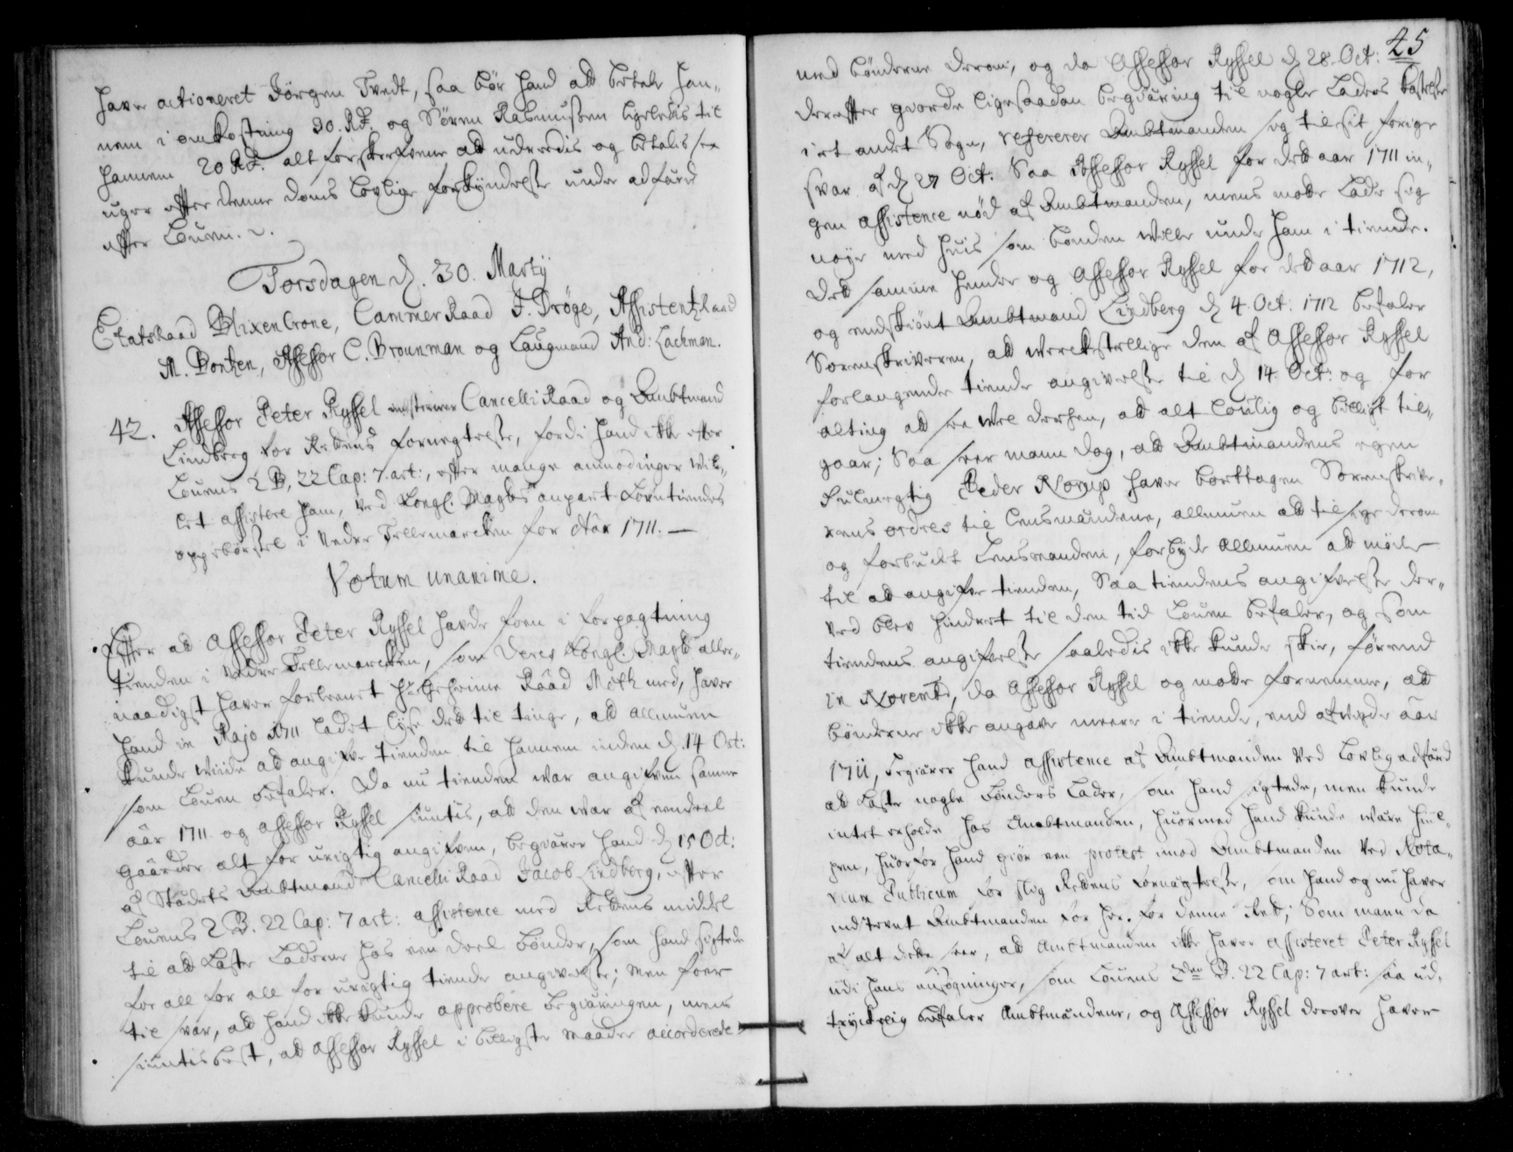 hafve actioneret Jørgen Tvedt, saa bør hand att betale han„
nem i omkostning 30. Rdr og Søren Rasmussen ligeledis til
hannem 20 Rdr: alt forskrefvene att udreedis og betalis sex
uger efter denne doms lovlige forkyndelse under adfærd
efter Louen.
Torsdagen d. 30. Martij
EtatsRaad Blixencrone, CammerRaad F. Dröge, AssistentzRaad
M. Bentzen, Assessor C. Brounman og Laugmand And: Lachman.
42. Assessor Peter Ryssel CancelliRaad og Ambtmand
Lindberg for Rettens fornegtelse, fordi hand ikke efter
Louens 2 B, 22 Cap: 7. art:, efter mange anmodinger vil„
let assistere ham, ved Kongl: Maytts anpart Korntiendes
oppebørsel i Neder Tellemarcken for Aar 1711. —
Votum unanime.
Efter at Assessor Peter Ryssel hafde faaen i forpagtning
tienden i Neder Tellemarcken, som Deres Kongl: Maytt aller„
naadigst hafver forleenet Hr Geheime Raad Moth med, hafver
hand in Majo 1711 ladet lyse det til tinge, at allmuen
kunde viide at angifve tienden til hannem inden d. 14 Oct:
som Louen befaler. Da nu tienden war angifven samme
aar 1711. og Assessor Ryssel siuntis, att den war af eendeel
gaarder alt for urigtig angifven, begiærer hand d 15 Oct:
af Stædets Ambtmand Cancelli Raad Jacob Lindberg, efter
Louens 2 B. 22 Cap: 7 art: assistence med Rettens middel
til att kaste Laderne hos een deel bønder, som hand sigtede
for all for all for urigtig tiende angivelse; men faaer
til svar, att hand ikke kunde approbere begiæringen, mens
siuntis best, att Assessor Ryssel i billigste maader accorderede
45
med bønderne derom, og da Assessor Ryssel d 28. Oct:
derefter giorde ligesaadan begiæring til nogle Laders kastelse
i et andet Sogn, refererer Ambtmanden sig til sit forige
svar af d 27 Oct: Saa Assessor Ryssel for det aar 1711 in„
gen assistence nød af Ambtmanden, mens motte lade sig
nøye med huis som bonden wille unde ham i tiende.
Det samme hender og Assessor Ryssel for det aar 1712,
og endskiønt Ambtmand Lindberg d 4. Oct: 1712 befaler
Sorenskriveren, att werckstellige den af Assessor Ryssel
forlangende tiende angivelse til d 14. Oct: og for
alting att see wel derhen, att alt loulig og billigt til„
gaar; Saa seer mann dog, att Ambtmandens egen
fuldmegtig Peder Norup hafver borttagen Sorenskrive„
rens ordres til Lensmændene, allmuen att tilsige derom
og forbudt Lensmanden, forbyde Allmuen att møde
til att angifve tienden, Saa tiendens angifvelse der„
ved blev hindret til den tid Louen befaler, og som
tiendens angifvelse saaledis ikke kunde skie, førend
in Novemb, da Assessor Ryssel og motte fornemme, att
bønderne ikke angave meere i tiende, end afvigte aar
1711, begiærer hand assistence af Ambtmanden ved Lovlig adfærd
att kaste nogle bønders Lader, som hand sigtede, men kunde
intet erholde hos Ambtmanden, huormed hand kunde være hiul„
pen, huorfor hand giør een protest imod Ambtmanden ved Nota„
rium Publicum for slig Rettens fornægtelse, som hand og nu hafver
indstevnt Ambtmanden for her for denne Ret; Som mann da
af alt dette seer, att Ambtmanden ikke hafver assisteret Peter Ryssel
udi hans ansøgninger, som Louens 2den B. 22 Cap: 7 art: saa ud„
tryckelig befaler Ambtmændene, og Assessor Ryssel derover hafver